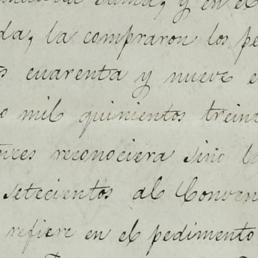 y en el
da, la compraron los pe
s cuarenta y nueve e
o mil quinientos trein
onces reconociera sino l
setecientos al Conven
refiere en el pedimento